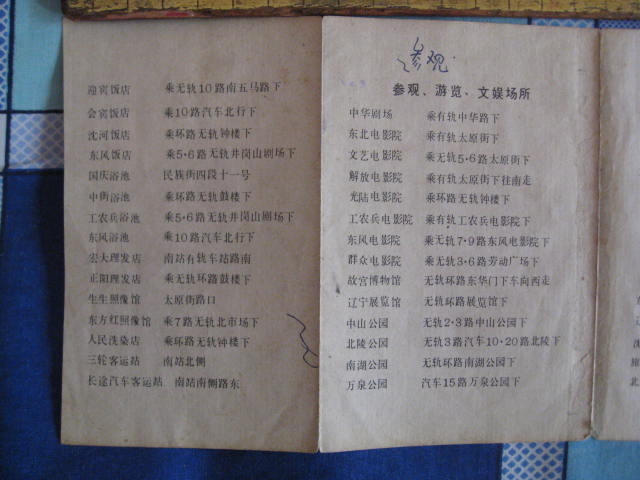 迎宾饭店 乘无轨10路南五马路下
会宾饭店 乘10路汽车北行下
沈河饭店 乘环路无轨钟楼下
东风饭店 乘5·6路无轨井岗山剧场下
国庆浴池 民族街四段十一号
中街浴池 乘环路无轨鼓楼下
工农兵浴池 乘5·6路无轨井岗山剧场下
东风浴池 乘10路汽车北行下
宏大理发店 南站有轨车站路南
正阳理发店 乘无轨环路鼓楼下
生生照像馆 太原街路口
东方红照像馆 乘7路无轨北市场下
人民洗染店 乘环路无轨钟楼下
三轮客运站 南站北侧
长途汽车客运站 南站南侧路东
参观
参观、游览、文娱场所
中华剧场 乘有轨中华路下
东北电影院 乘有轨太原街下
文艺电影院 乘无轨5·6路太原街下
解放电影院 乘有轨太原街下往南走
光陆电影院 乘环路无轨钟楼下
工农兵电影院 乘有轨工农兵电影院下
东风电影院 乘无轨7·9路东风电影院下
群众电影院 乘无轨3·6路劳动广场下
故宫博物馆 无轨环路东华门下车向西走
辽宁展览馆 无轨环路展览馆下
中山公园 无轨2·3路中山公园下
北陵公园 无轨3路汽车10·20路北陵下
南湖公园 无轨环路南湖公园下
万泉公园 汽车15路万泉公园下